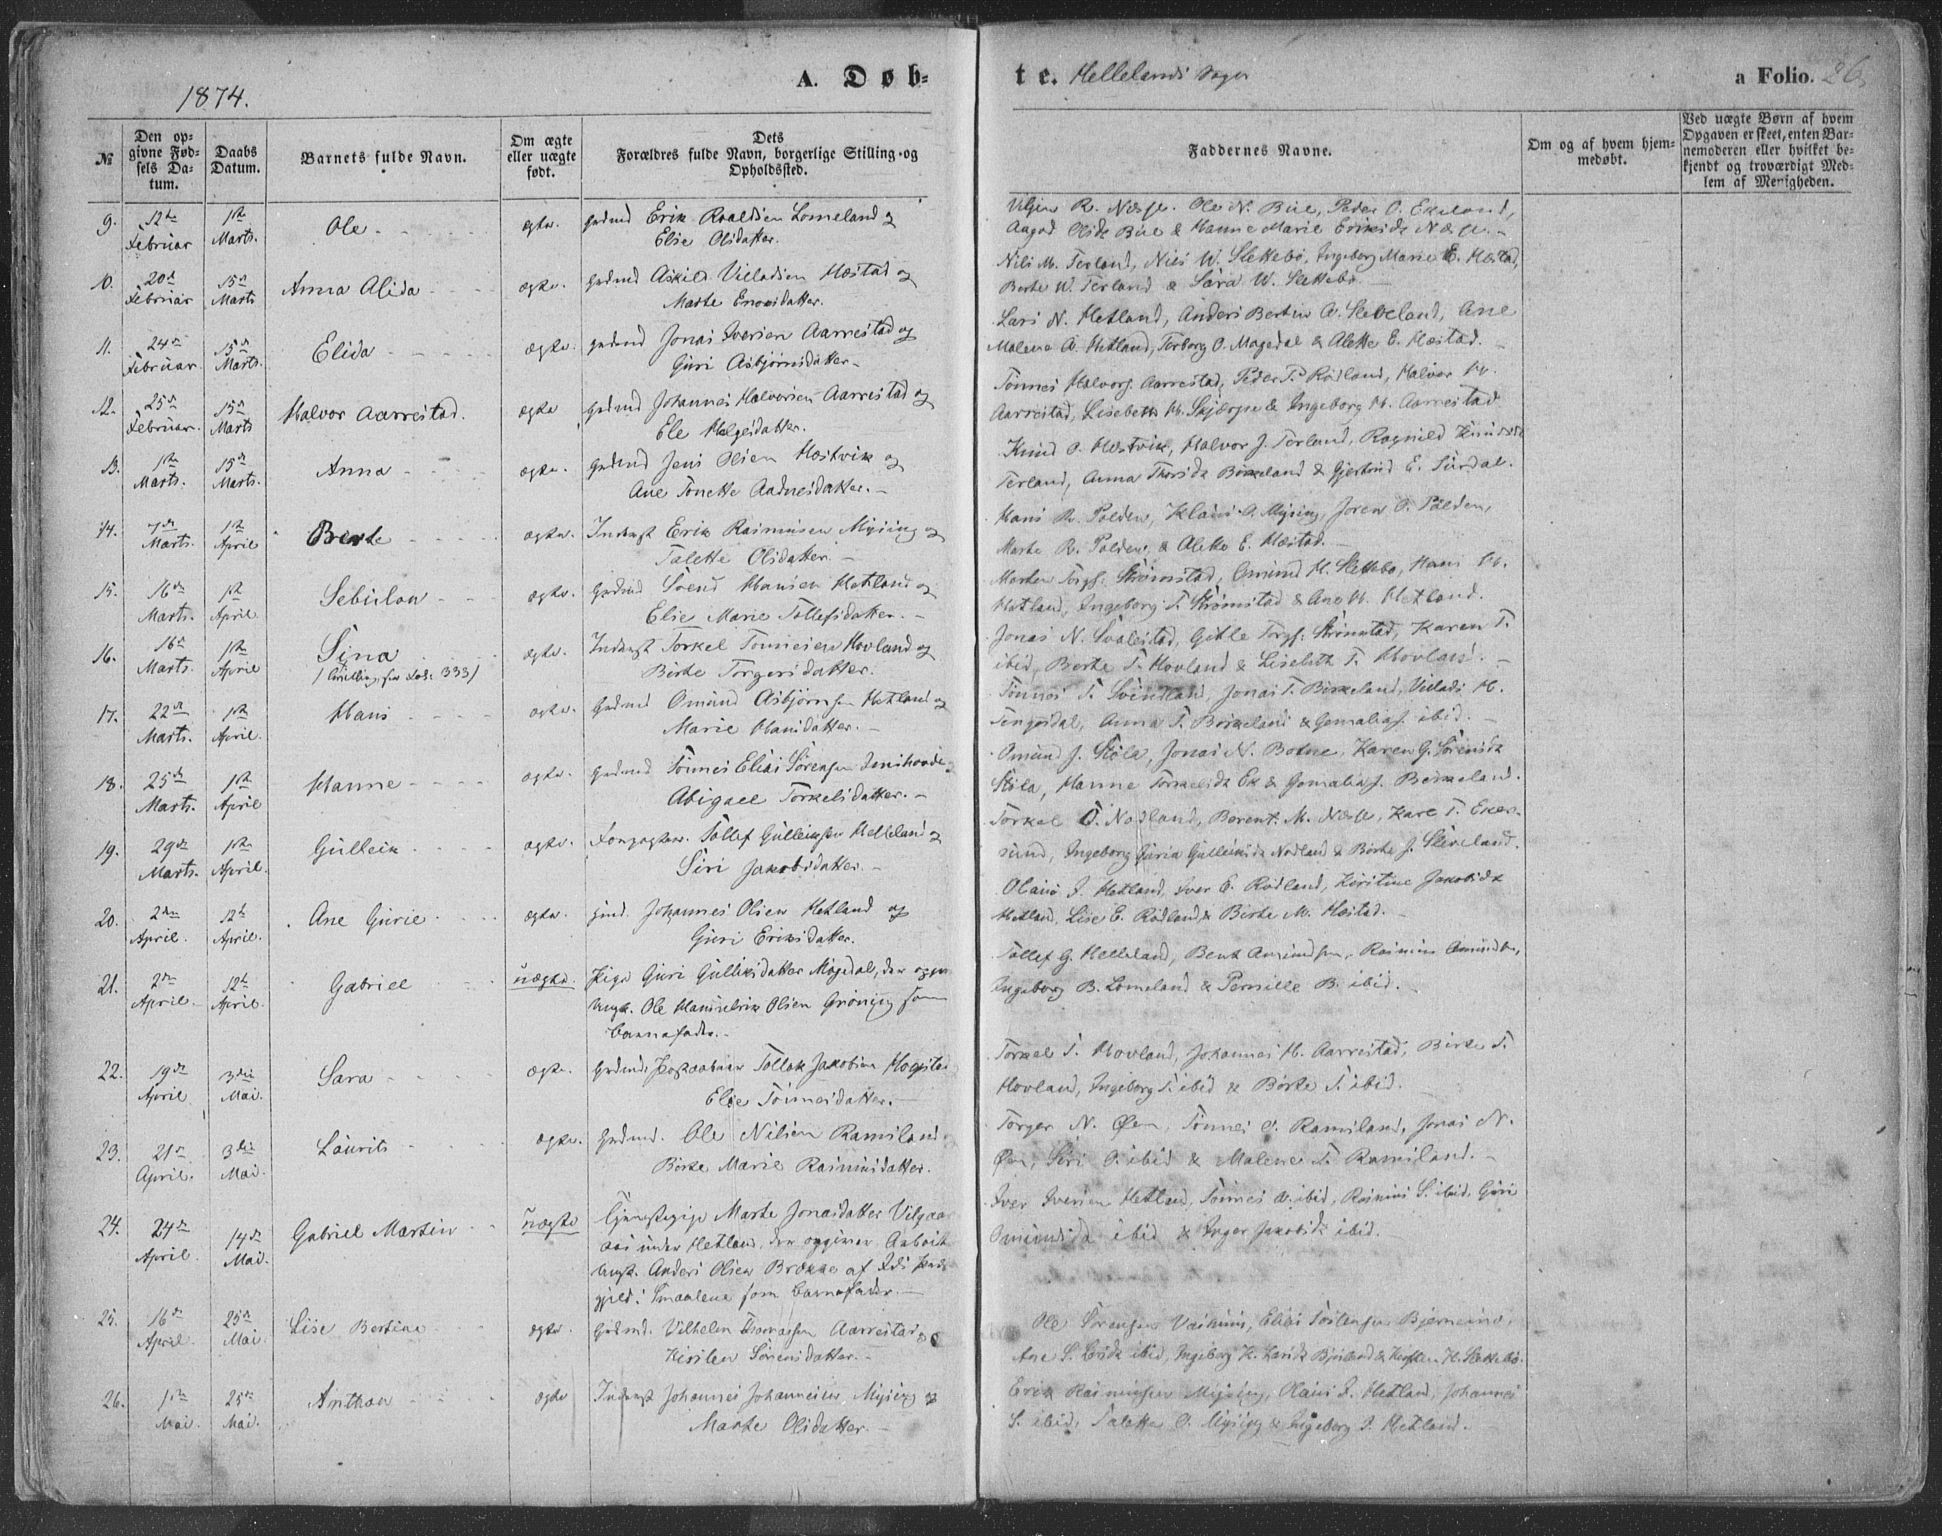 1874.
A. Døb-
te. Hellelands Sogn
a Folio. 26
№
Den op-
givne Fød-
sels Da-
tum.
Daabs
Datum.
Barnets fulde Navn.
Om ægte
eller uægte
født.
Dets
Forældres fulde Navn, borgerlige Stilling og
Opholdssted.
Faddernes Navne.
Om og af hvem hjem-
medøbt.
Ved uægte Børn af hvem
Opgaven er skeet, enten Bar-
nemoderen eller hvilket be-
kjendt og troværdigt Med-
lem af Menigheden.
9. 12te Februar 1ste Marts. Ole ægte. Gudmd Erik Roaldsen Lomeland og
Elise Olsdatter.
R. Næsse. Ole N. Bue, Peder O. Ekeland,
Aagod Olsdt Bue & Hanne Marie Eriksdt Næsse.
10. 20de Februar 15de Marts Anna Alida ægte. Gudmd Askild Villadsen Hæstad og
Marte Enoksdatter.
Nils M. Terland, Nils W. Slettebø, Ingeborg Marie E. Hæstad,
Berte W. Terland & Sara W. Slettebø.
11. 24de Februar. 15de Marts. Elida ægte. Gudmd Jonas Iversen Aarrestad og
Guri Asbjørnsdatter
Lars N. Hetland, Anders Bertin A. Sleveland, Ane
Malene A. Hetland, Torborg O. Møgedal & Alette E. Hæstad.
12. 25de Februar. 15de Marts Halvor Aarrestad. ægte Gudmd Johannes Halvorsen Aarrestad og
Ele Helgesdatter.
Tønnes Halvors. Aarrestad, Peder T. Rødland, Halvor H.
Aarrestad, Lisebeth H. Skjærpe & Ingeborg H. Aarrestad
13. 1ste Marts. 15de Marts. Anna ægte. Gudmd Jens Olsen Hæstvik og
Ane Tonette Aadnesdatter.
Knud O. Hæstvik, Halvor J. Terland, Ragnild Knudsdt
Terland, Anna Thorsdt Birkeland & Gjertrud E. Surdal.
14. 7de Marts. 1ste April Berte ægte. Inderst Erik Rasmusen Mysing og
Talette Olsdatter.
Hans R. Polden, Klaus A. Mysing, Joren O. Polden,
Marte R. Polden, & Alette E. Hæstad.
15. 16de Marts. 1ste April Sebulon ægte. Gudmd Svend Hansen Hetland og
Elise Marie Tollefsdatter.
Morten Torgs. Strømstad, Omund H. Slettebø, Hans H.
Hetland, Ingeborg T. Strømstad & Ane H. Hetland.
16. 16de Marts. 1ste April Sina ægte. Inderst Torkel Tønnesen Hovland og
333/
Birte Torgersdatter.
Jonas N. Svalestad, Gitle Torgs. Strømstad, Karen T.
ibid, Berte T. Hovland & Liselbeth T. Hovland.
17. 22de Marts. 1ste April. Hans ægte. Gudmd Omund Asbjørnsen Hetland og
Marie Hansdatter.
Tønnes T. Svindland, Jonas T. Birkeland, Villads H.
Tengesdal, Anna T. Birkeland & Gomalia J. ibid.
18. 25de Marts. 1ste April Hanne ægte. Gudmd Tønnes Elias Sørensen
Abigael Torkelsdatter.
Omund J. Skola, Jonas N. Botne, Karen G. Sørensdt
Skola, Hanne Torkelsdt Ek & Gomalia J. Birkeland.
19. 29de Marts. 1ste April. Gulleik ægte. Tollef Gulleiksen Helleland og
Siri Jakobsdatter.
Torkel O. Nodland, Berent M. Næsse, Karl T. Eker-
sund, Ingeborg Guria Gulleiksdt Nodland & Børte J. Sleveland.
20. 2den April. 12te April. Ane Gurie ægte. Gmd. Johannes Olsen Hetland og
Guri Eriksdatter.
Olaus J. Hetland, Iver E. Rødland, Kirstine Jakobsdt
Hetland, Lise E. Rødland & Birte M. Hæstad.
21. 2den April. 12te April. Gabriel uægte. Pige Guri Gulliksdatter Møgedal, der opgiver
Ungk. Ole Hansulrik Olsen Grøning som
barnefader.
Tollef G. Helleland, Bent Amundsen, Rasmus Amundsen,
Ingeborg B. Lomeland & Pernille B. ibid.
22. 19de April 3die Mai. Sara ægte. Gudmd. Tollak Jakobsen
Elise Tønnesdatter.
Torkel T. Hovland, Johannes H. Aarrestad, Birte T.
Hovland, Ingeborg T. ibid & Børte T. ibid.
23. 21de April. 3die Mai. Laurits ægte. Gudmd. Ole Nilsen Ramsland
Birte Marie Rasmusdatter.
Torger N. Øen, Tønnes O. Ramsland, Jonas N.
Øen, Siri O. ibid & Malene T. Ramsland.
24. 24de April 14de Mai. Gabriel Martin uægte Tjenestepige Marte Jonasdatter
under Hetland, der opgiver Arbeid.
Ungk. Anders Olsen Brække af Præste-
gjeld, Smaalene som barnefader.
Iver Iversen Hetland, Tønnes ibid, Rasmus S. ibid, Guri
Omundsdt ibid & Inger Jakobsdt ibid.
25. 16de April 25de Mai. Lise Bertine ægte. Gudmd. Vilhelm Thomassen Aarrestad og
Kirsten Sørensdatter.
Ole Sørensen Elias
Ane S. ibid, Ingeborg K.
26. 1ste Mai. 25de Mai. Anthon ægte Inderst Johannes Johannesen Mysing og
Marte Olsdatter.
Erik Rasmussen Mysing, Olaus J. Hetland, Johannes
S. ibid, Talette O. Mysing & Ingeborg J. Hetland.